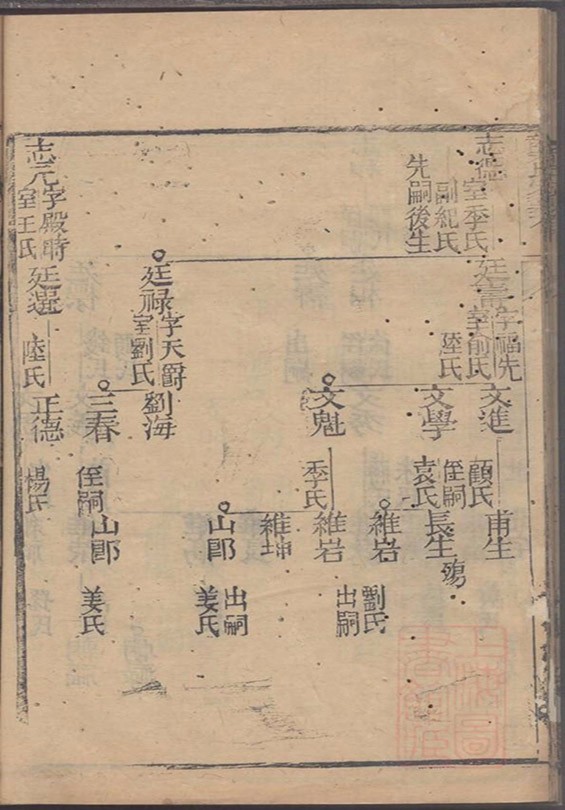 志
室季氏
副紀氏
先嗣後生
廷壽
字福先
室俞氏
陸氏
文進
顧氏
甫生
文學
侄嗣
袁氏
長生
殤
維岩
劉氏
出嗣
文魁
季氏
維岩
維坤
山郎
出嗣
姜氏
廷祿
字天爵
室劉氏
劉海
三春
侄嗣
山郎
姜氏
志元
字殿時
室王氏
廷選
陸氏
正德
楊氏